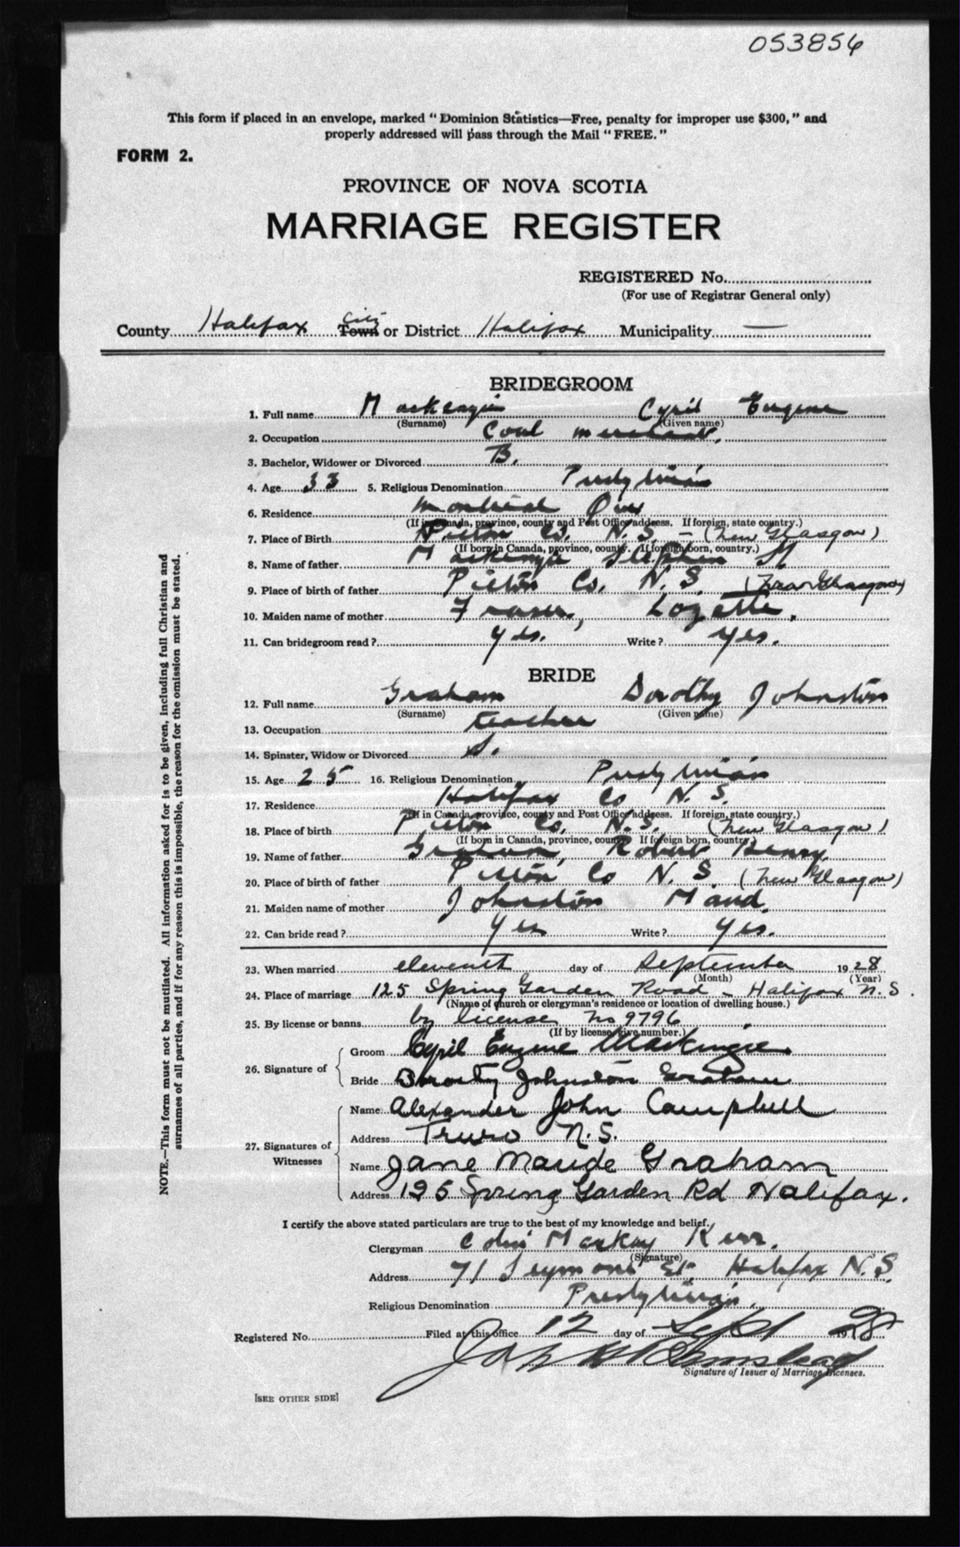 053856
This form if placed in an envelope, marked "Dominion Statistics—Free, penalty for improper use $300," and
properly addressed will pass through the Mail "FREE."
FORM 2.
PROVINCE OF NOVA SCOTIA
MARRIAGE REGISTER
REGISTERED No.
(For use of Registrar General only)
City
County Halifax Town or District Halifax Municipality —
BRIDEGROOM
1. Full name Mackenzie Cyril Eugene
(Surname) (Given name)
2. Occupation Coal merchant.
3. Bachelor, Widower or Divorced B.
4. Age 33 5. Religious Denomination Presbyterian
6. Residence Montreal Que
(If in Canada, province, county and Post Office address. If foreign, state country.)
7. Place of Birth Pictou Co. N. S. - (New Glasgow)
(If born in Canada, province, county. If foreign born, country.)
8. Name of father Mackenzie Stephen M
9. Place of birth of father Pictou Co. N. S. (New Glasgow)
10. Maiden name of mother Fraser,
11. Can bridegroom read? Yes. Write? Yes.
BRIDE
12. Full name Graham Dorothy Johnston
(Surname) (Given name)
13. Occupation teacher
14. Spinster, Widow or Divorced S.
15. Age 25 16. Religious Denomination Presbyterian
17. Residence Halifax Co N. S.
(If in Canada, province, county and Post Office address. If foreign, state country.)
18. Place of birth Pictou Co. N. S. (New Glasgow)
(If born in Canada, province, county. If foreign born, country)
19. Name of father Graham, Robert Henry
20. Place of birth of father Pictou Co N. S. (New Glasgow)
21. Maiden name of mother Johnston Maud.
22. Can bride read? Yes Write? Yes.
23. When married eleventh day of September 1928
(Month) (Year)
24. Place of marriage 125 Spring Garden Road - Halifax N.S.
(Name of church or clergyman's residence or location of dwelling house.)
25. By license or banns by license no 9796
(If by license, give number.)
26. Signature of
Groom Cyril Eugene Mackenzie
Bride Dorothy Johnston Graham
27. Signatures of Witnesses
Name Alexander John Campbell
Address Truro N.S.
Name Jane Maude Graham
Address 125 Spring Garden Rd Halifax.
I certify the above stated particulars are true to the best of my knowledge and belief.
Clergyman Colin Mackay Kerr.
(Signature)
Address 71 Seymour St Halifax N.S.
Religious Denomination Presbyterian.
Registered No. Filed at this office 12 day of Sept 1928
Signature of Issuer of Marriage Licenses.
[SEE OTHER SIDE]
NOTE.—This form must not be mutilated. All information asked for is to be given, including full Christian and
surnames of all parties, and if for any reason this is impossible, the reason for the omission must be stated.